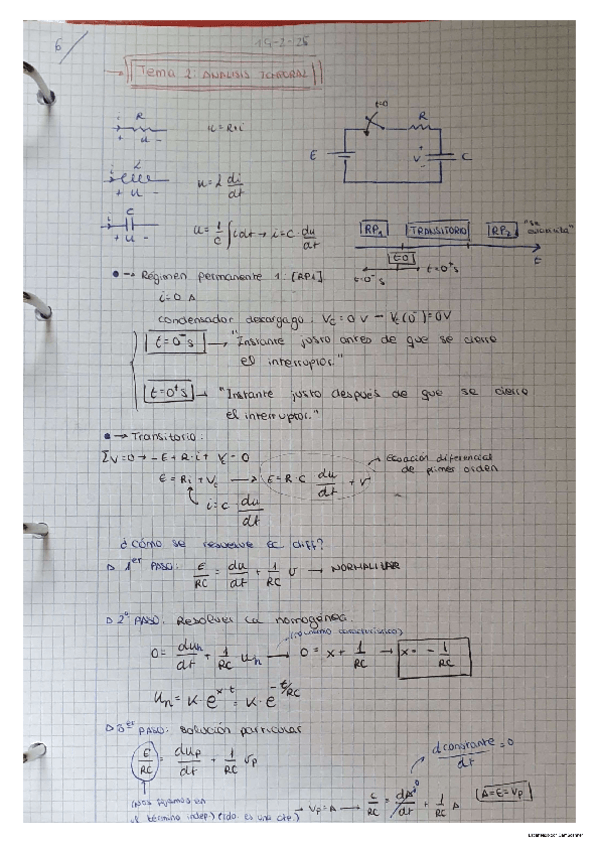 6/
19-2-25
→ Tema 2: ANALISIS TEMPORAL
i R
+ u -
u = R·i
i L
+ u -
u = L di/dt
i C
+ u -
u = 1/C ∫ i dt → i = C · du/dt
t=0
R
E
+ V -
C
RP1 TRANSITORIO RP2
t=0
t=0⁻s t=0⁺s
t
● → Régimen permanente 1: [RP1]
i = 0 A
condensador descargado: Vc = 0 V - Vc(0⁻) = 0V
t = 0⁻s → "Instante justo antes de que se cierre
el interruptor."
t = 0⁺s → "Instante justo después de que se cierre
el interruptor."
● → Transitorio:
ΣV=0 → -E + R·i + Vc = 0
E = Ri + Vc → E = R·C du/dt + V
→ Ecuación diferencial
de primer orden
i = C du/dt
¿Cómo se resuelve EC diff?
▷ 1er PASO: E/RC = du/dt + 1/RC V → NORMALIZAR
▷ 2º PASO: Resolver la homogénea.
(polinomio característico)
0 = duh/dt + 1/RC uh → 0 = x + 1/RC → x = - 1/RC
uh = K·e^x·t = K·e^-t/RC
▷ 3er PASO: Solución particular
E/RC = dup/dt + 1/RC Vp
d constante/dt = 0
(Nos fijamos en
el término indep.) (do. es una cte.) → Vp = A → E/RC = dA/dt⁰ + 1/RC A
A=E=Vp